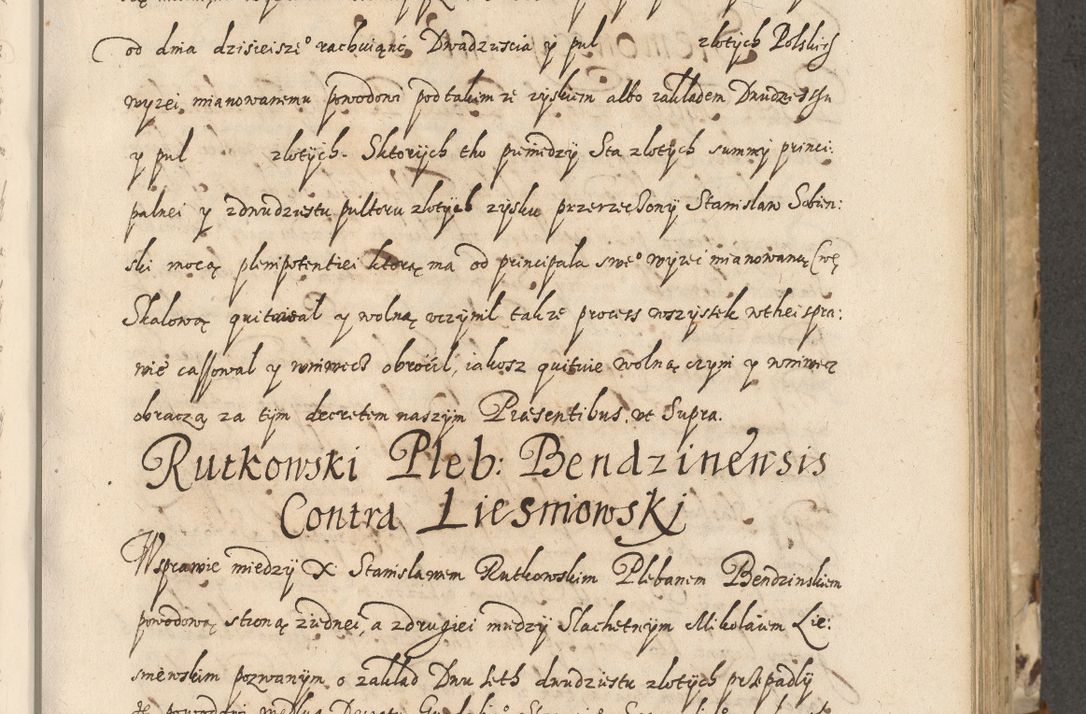 od dnia dzisieisze° rachuiąnc Dwadziescia y pul zlotych Polskich
wyzei mianowanemu powodowi pod takim ze zyskiem albo zakładem Dwudziestu
y pul zlotych. Sktorych tho pieniedzy Sta zlotych summy princi:
palnei y zdwudziestu pultoru zlotych zysku przerzeczony Stanislaw Sobien:
ski mocą plenipotentiei ktorą ma od principala swe° wyzei mianowaną
Skalową quitowal y wolną uczynil takze process wszystek wthei spra:
wie cassował y wniwecz obrócił, iakosz quituie wolną czyni y wniwecz
obracza za tym decretem naszym Præsentibus. ut Supra.
Rutkowski Pleb: Bendzinensis
Contra Liesniowski
Wsprawie miedzy X Stanislawem Rutkowskim Plebanem Bendzinskiem
powodową stroną ziednei, a zdrugiei miedzy Slachetnym Mikolaiem Lie:
sniewskim pozwanym o zakład Dwu seth dwudziestu zlotych przepadly
powodowi według